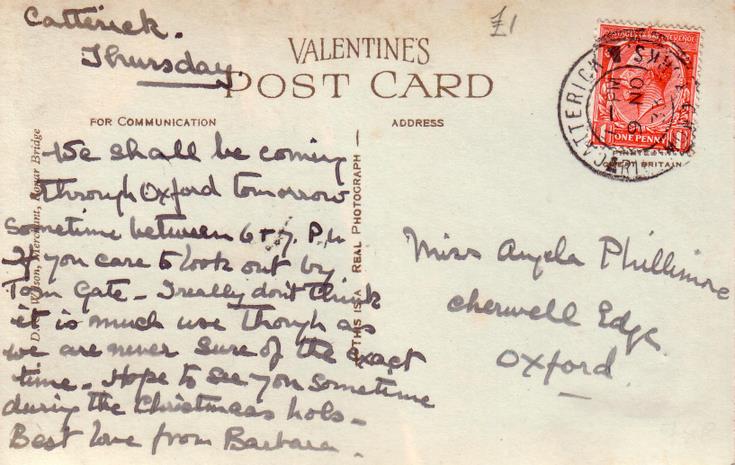 Catterick.
Thursday.
£1
VALENTINE'S
POST CARD
FOR COMMUNICATION
ADDRESS
We shall be coming
through Oxford tomorrow
Sometime between 6 & 7. P.M.
If you care to look out by
Tom Gate - I really don't think
it is much use though as
we are never sure of the exact
time - Hope to see you sometime
during the Christmas hols -
Best love from Barbara.
THIS IS A REAL PHOTOGRAPH
Wilson, Merchant, Bonar Bridge
Miss Angela Phillimore
Cherwell Edge
Oxford.
CATTERICK
ONE PENNY
GREAT BRITAIN